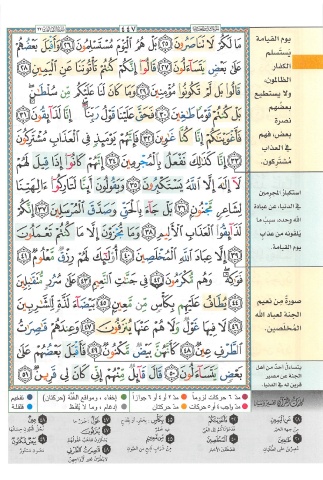 ٤٤٧
مَا لَكُمْ لَا تَنَاصَرُونَ ٢٥ بَلْ هُمُ ٱلْيَوْمَ مُسْتَسْلِمُونَ ٢٦ وَأَقْبَلَ بَعْضُهُمْ
عَلَىٰ بَعْضٍ يَتَسَآءَلُونَ ٢٧ قَالُوٓا۟ إِنَّكُمْ كُنتُمْ تَأْتُونَنَا عَنِ ٱلْيَمِينِ ٢٨
قَالُوا۟ بَل لَّمْ تَكُونُوا۟ مُؤْمِنِينَ ٢٩ وَمَا كَانَ لَنَا عَلَيْكُم مِّن سُلْطَٰنٍۭ
بَلْ كُنتُمْ قَوْمًا طَٰغِينَ ٣٠ فَحَقَّ عَلَيْنَا قَوْلُ رَبِّنَآ إِنَّا لَذَآئِقُونَ ٣١
فَأَغْوَيْنَٰكُمْ إِنَّا كُنَّا غَٰوِينَ ٣٢ فَإِنَّهُمْ يَوْمَئِذٍ فِى ٱلْعَذَابِ مُشْتَرِكُونَ
٣٣ إِنَّا كَذَٰلِكَ نَفْعَلُ بِٱلْمُجْرِمِينَ ٣٤ إِنَّهُمْ كَانُوٓا۟ إِذَا قِيلَ لَهُمْ
لَآ إِلَٰهَ إِلَّا ٱللَّهُ يَسْتَكْبِرُونَ ٣٥ وَيَقُولُونَ أَئِنَّا لَتَارِكُوٓا۟ ءَالِهَتِنَا
لِشَاعِرٍ مَّجْنُونٍۭ ٣٦ بَلْ جَآءَ بِٱلْحَقِّ وَصَدَّقَ ٱلْمُرْسَلِينَ ٣٧ إِنَّكُمْ
لَذَآئِقُوا۟ ٱلْعَذَابِ ٱلْأَلِيمِ ٣٨ وَمَا تُجْزَوْنَ إِلَّا مَا كُنتُمْ تَعْمَلُونَ
٣٩ إِلَّا عِبَادَ ٱللَّهِ ٱلْمُخْلَصِينَ ٤٠ أُو۟لَٰٓئِكَ لَهُمْ رِزْقٌ مَّعْلُومٌ ٤١
فَوَٰكِهُ وَهُم مُّكْرَمُونَ ٤٢ فِى جَنَّٰتِ ٱلنَّعِيمِ ٤٣ عَلَىٰ سُرُرٍ مُّتَقَٰبِلِينَ
٤٤ يُطَافُ عَلَيْهِم بِكَأْسٍ مِّن مَّعِينٍۭ ٤٥ بَيْضَآءَ لَذَّةٍ لِّلشَّٰرِبِينَ
٤٦ لَا فِيهَا غَوْلٌ وَلَا هُمْ عَنْهَا يُنزَفُونَ ٤٧ وَعِندَهُمْ قَٰصِرَٰتُ
ٱلطَّرْفِ عِينٌ ٤٨ كَأَنَّهُنَّ بَيْضٌ مَّكْنُونٌ ٤٩ فَأَقْبَلَ بَعْضُهُمْ عَلَىٰ
بَعْضٍ يَتَسَآءَلُونَ ٥٠ قَالَ قَآئِلٌ مِّنْهُمْ إِنِّى كَانَ لِى قَرِينٌ ٥١
يوم القيامة
يستسلم
الكفار
الظالمون،
ولا يستطيع
بعضهم
نصرة
بعض، فهم
في العذاب
مشتركون.
استكبار المجرمين
في الدنيا، عن عبادة
الله وحده، سبب ما
يلقونه من عذاب
يوم القيامة.
صورة من نعيم
الجنة لعباد الله
المخلصين.
يتساءل أحد من أهل
الجنة عن مصير
قرين له في الدنيا.
مدّ ٦ حركات لزوماً
مدّ ٢ أو ٤ أو ٦ جوازاً
إخفاء، ومواقع الغنّة (حركتان)
تفخيم
مدّ حركتان
إدغام، وما لا يُلفظ
قلقلة